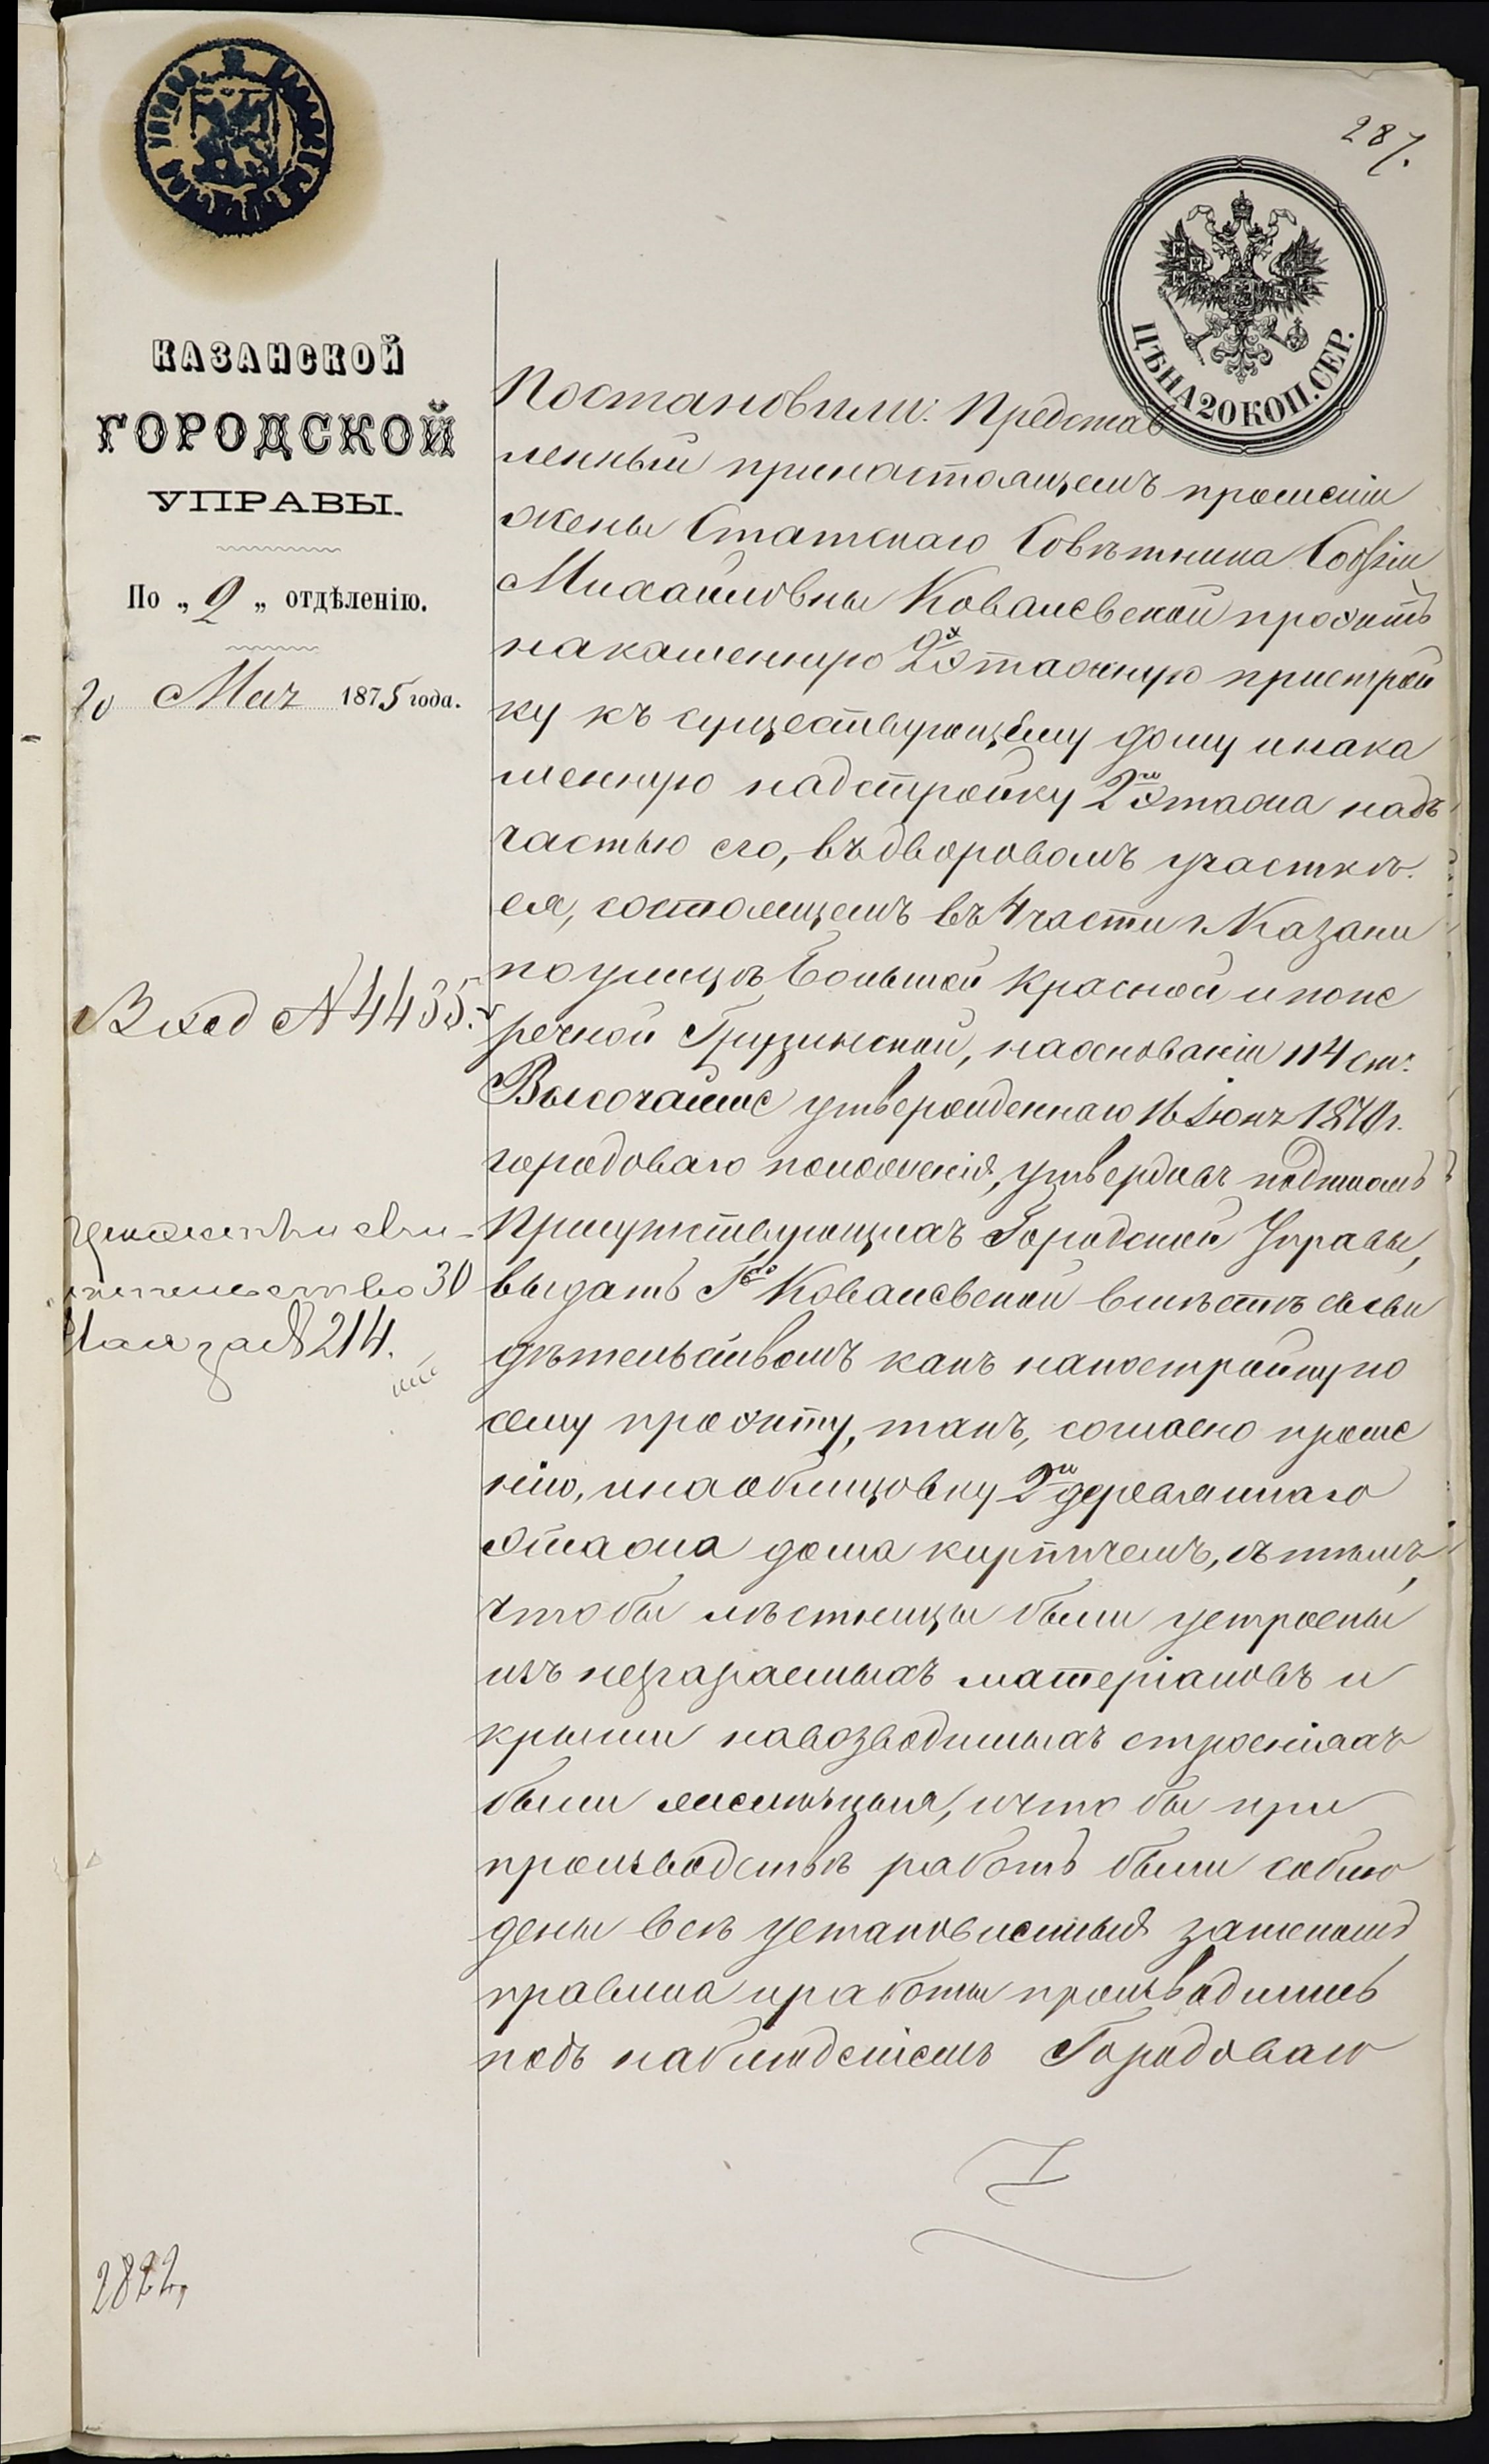 287.
ЦѢНА 20 КОП. СЕР.
КАЗАНСКОЙ
ГОРОДСКОЙ
УПРАВЫ.
По „2„ отдѣленію.
20 Мая 1875 года.
Вход № 4435.
сви-
дѣтельство 30
Мая за № 214.
2822,
Постановили: Представ
ленный принастоящемъ прошеніи
жены Статскаго Совѣтника Софіи
Михайловны Ковалевской проэктъ
накаменную 2х этажную пристрой
ку къ существующему дому инака
менную надстройку 2го этажа надъ
частью его, въдворовомъ участкѣ
ея, состоящемъ въ 4 части г. Казани
поулицѣ Большой Красной и попе
речной Грузинской, наоснованіи 114 ст.
Высочайше утвержденнаго 16 Іюня 1870 г.
городоваго положенія, утвердивъ подписомъ
Присутствующихъ Городской Управы,
выдать Г-жѣ Ковалевской вмѣстѣ съсви
дѣтельствомъ какъ напостройку по
сему проэкту, такъ, согласно проше
нію, инаоблицовку 2го деревяннаго
этажа дома кирпичемъ, съ тѣмъ,
чтобы лѣстницы были устроены
изъ незгараемыхъ матеріаловъ и
крыши навозводимыхъ строеніяхъ
были желѣзныя, ичто бы при
производствѣ работъ были соблю
дены всѣ установленныя закономъ
правила иработы производились
подъ наблюденіемъ Городоваго